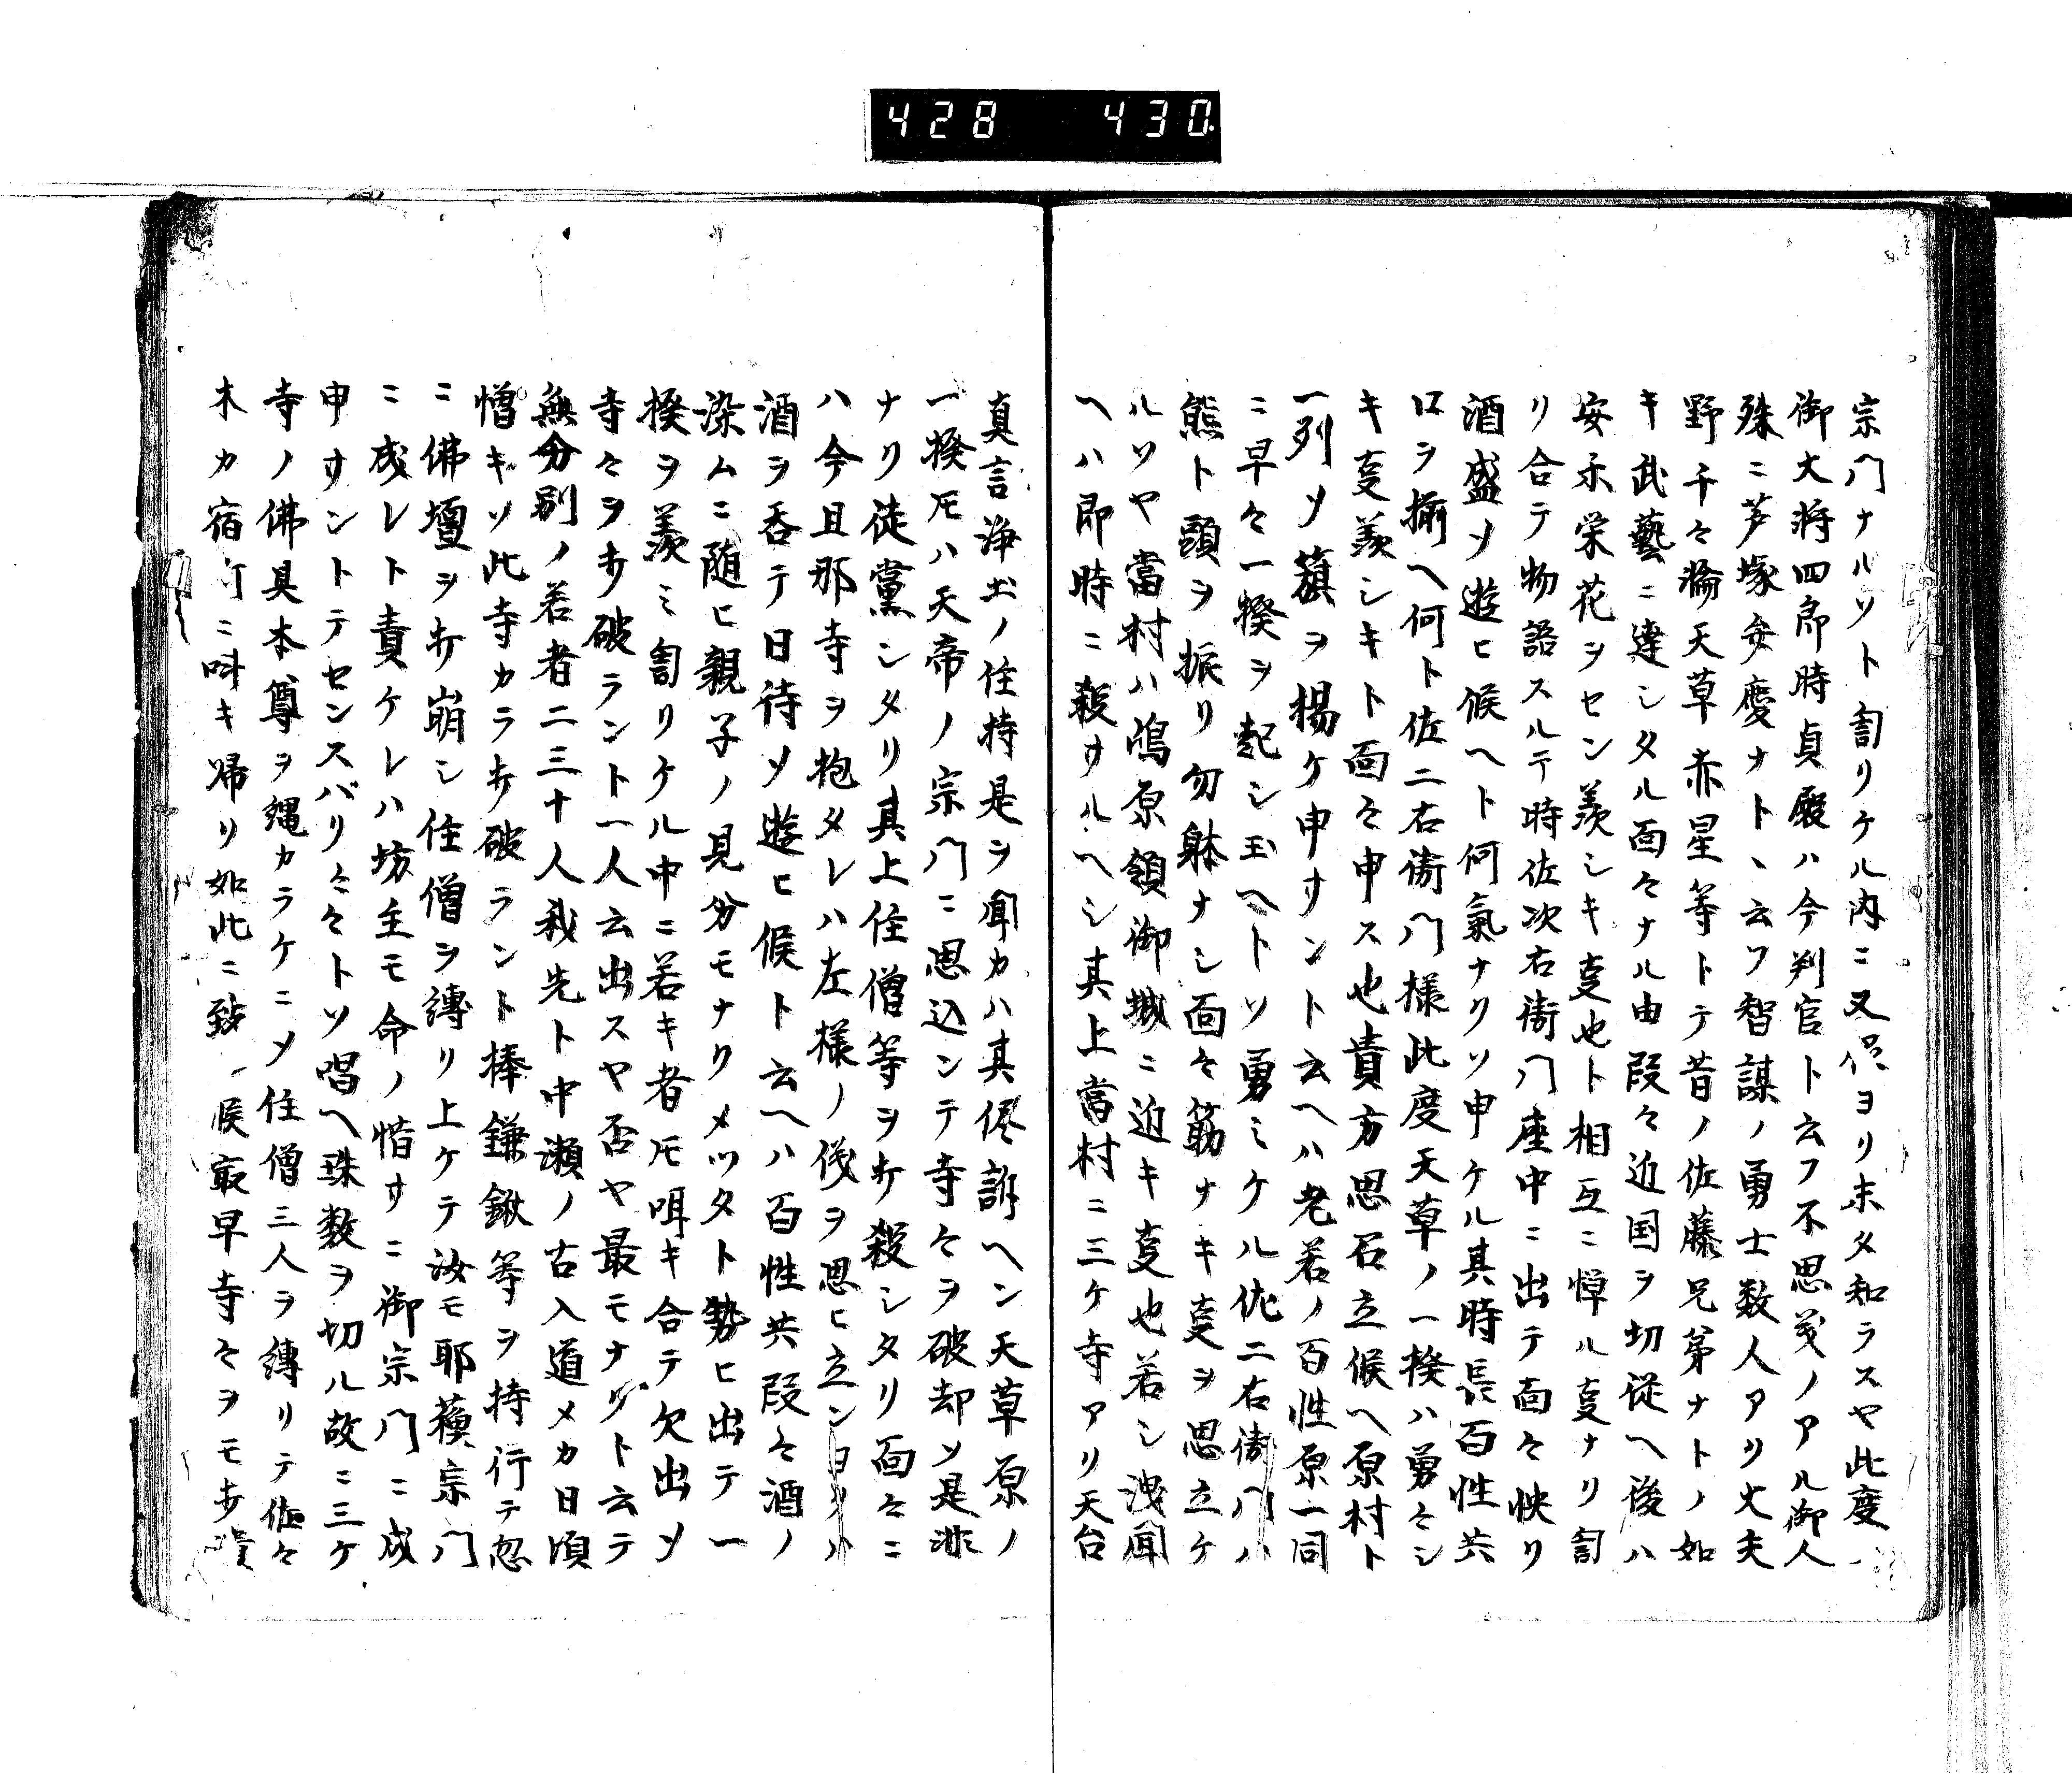 428 430
宗門ナルソト訇リケル内ニ又侭ヨリ末タ知ラスヤ此度
御大将四郎時貞殿ハ今判官ト云フ不思議ノアル御人
殊ニ芦塚安慶ナトヽ云フ智謀ノ勇士数人アリ大夫
野千々輪天草赤星等トテ昔ノ佐藤兄弟ナトノ如
キ武藝ニ達シタル面々ナル由段々近国ヲ切従ヘ後ハ
安示栄花ヲセン羨シキ㕝也ト相互ニ憚ル㕝ナリ訇
リ合テ物語スルテ時佐次右衛門座中ニ出テ面々怏リ
酒盛ソ遊ヒ候ヘト何氣ナクソ申ケル其時長百性共
口ヲ揃ヘ何ト佐二右衛門様此度天草ノ一揆ハ勇々シ
キ㕝羨シキト面々申ス也貴方思召立候ヘ原村ト
一列ソ籏ヲ揚ケ申サント云ヘハ老若ノ百性原一同
ニ早々一揆ヲ起シ玉ヘトソ勇ミケル佐二右衛門ハ
熊ト頭ヲ振リ勿躰ナシ面々筋ナキ㕝ヲ思立ケ
ルソヤ當村ハ嶋原領御城ニ近キ㕝也若シ洩聞
ヘハ即時ニ殺サルヘシ其上當村ニ三ケ寺アリ天台
真言浄土ノ住持是ヲ聞カハ其侭訴ヘン天草原ノ
一揆モハ天帝ノ宗門ニ思込ンテ寺々ヲ破却ソ是非
ナリ徒黨シタリ其上住僧等ヲ打殺シタリ面々ニ
ハ今且那寺ヲ抱タレハ左様ノ儀ヲ思ヒ立ン
酒ヲ呑テ日待ソ遊ヒ候ト云ヘハ百性共段々酒ノ
染ムニ随ヒ親子ノ見分モナクメツタト勢ヒ出テ一
揆ヲ羨ミ訇リケル中ニ若キ者モ咡キ合テ欠出ソ
寺々ヲ打破ラント一人云出スヤ否ヤ最モナリト云テ
無分別ノ若者二三十人我先ト中瀬ノ古入道メカ日頃
憎キソ此寺カラ打破ラント棒鎌鍬等ヲ持行テ忽
ニ佛壇ヲ打崩シ住僧ヲ縛リ上ケテ汝モ耶蘇宗門
ニ成レト責ケレハ坊主モ命ノ惜サニ御宗門ニ成
申サントテセンスバリ々々トソ唱ヘ珠数ヲ切ル故ニ三ケ
寺ノ佛具本尊ヲ縄カラケニソ住僧三人ヲ縛リテ佐々
木カ宿所ニ叫キ帰リ如此ニ致候最早寺々ヲモ打